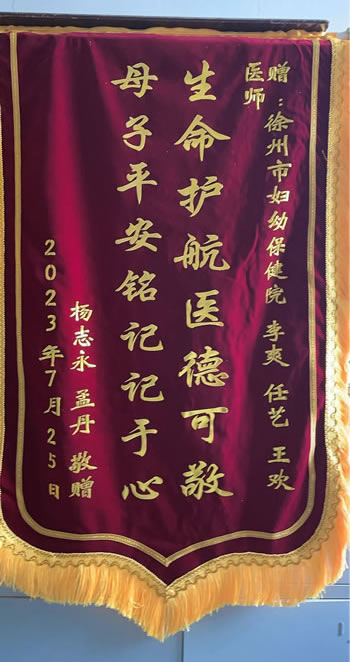 赠：徐州市妇幼保健院 李爽 任艺 王欢
医师
生命护航医德可敬
母子平安铭记记于心
杨志永 孟丹 敬赠
2023年7月25日